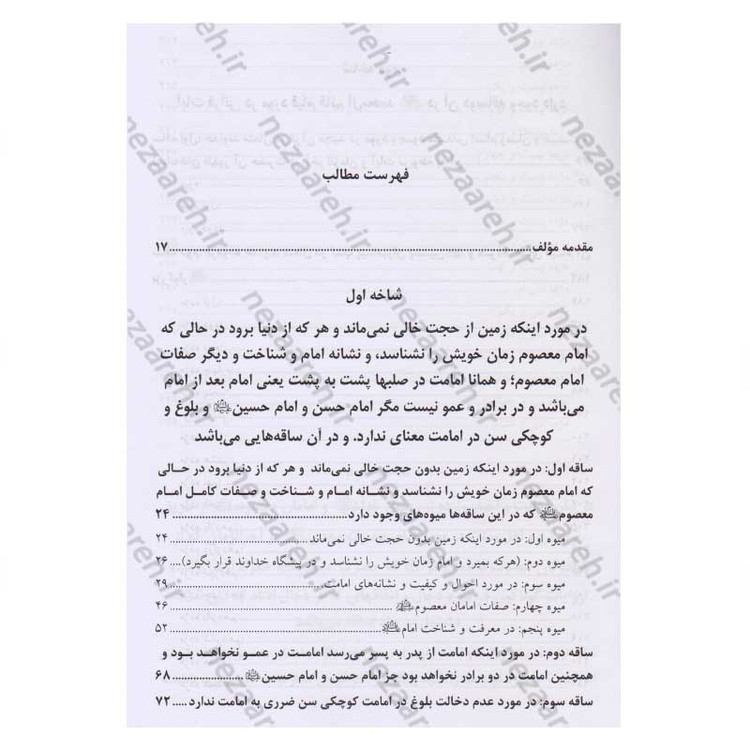 فهرست مطالب
مقدمه مؤلف ..... ۱۷
شاخه اول
در مورد اینکه زمین از حجت خالی نمی‌ماند و هر که از دنیا برود در حالی که
امام معصوم زمان خویش را نشناسد، و نشانه امام و شناخت و دیگر صفات
امام معصوم؛ و همانا امامت در صلبها پشت به پشت یعنی امام بعد از امام
می‌باشد و در برادر و عمو نیست مگر امام حسن و امام حسین و بلوغ و
کوچکی سن در امامت معنای ندارد. و در آن ساقه‌هایی می‌باشد
ساقه اول: در مورد اینکه زمین بدون حجت خالی نمی‌ماند و هر که از دنیا برود در حالی
که امام معصوم زمان خویش را نشناسد و نشانه امام و شناخت و صفات کامل امام
معصوم که در این ساقه‌ها میوه‌های وجود دارد ..... ۲۴
میوه اول: در مورد اینکه زمین بدون حجت خالی نمی‌ماند ..... ۲۴
میوه دوم: (هرکه بمیرد و امام زمان خویش را نشناسد و در پیشگاه خداوند قرار بگیرد) .... ۲۶
میوه سوم: در مورد احوال و کیفیت و نشانه‌های امامت ..... ۲۹
میوه چهارم: صفات امامان معصوم ..... ۴۶
میوه پنجم: در معرفت و شناخت امام ..... ۵۲
ساقه دوم: در مورد اینکه امامت از پدر به پسر می‌رسد امامت در عمو نخواهد بود و
همچنین امامت در دو برادر نخواهد بود جز امام حسن و امام حسین ..... ۶۸
ساقه سوم: در مورد عدم دخالت بلوغ در امامت کوچکی سن ضرری به امامت ندارد ..... ۷۲
nezaareh.ir